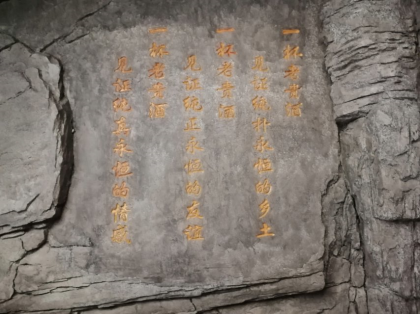 一杯老黄酒
见证纯朴永恒的乡土
一杯老黄酒
见证纯正永恒的友谊
一杯老黄酒
见证纯真永恒的情感